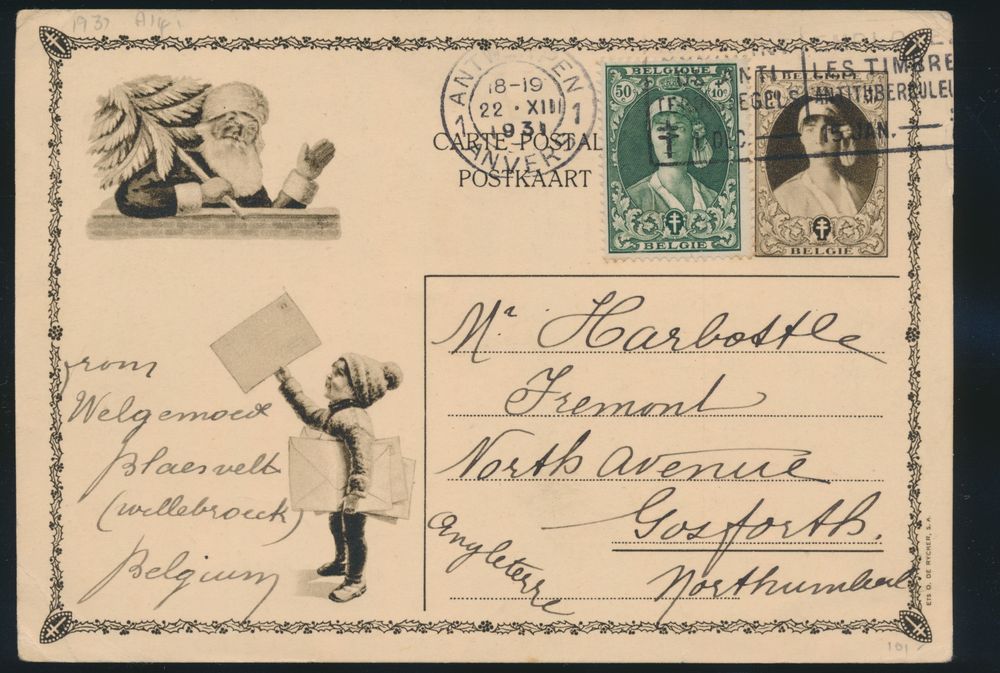 1931
CARTE POSTAL
POSTKAART
ANTWERPEN
18-19
22 · XII
1931
1 1
ANVERS
BELGIQUE
50 10c
BELGIE
BELGIQUE
BELGIE
LES TIMBRE
ANTITUBERCULEU
DEC. — 15 JAN.
from
Welgemoed
Blaesvelt
(Willebroeck)
Belgium
Mr Harbottle
Fremont
North Avenue
Gosforth.
Angleterre
Northumberl
ETS O. DE RYCKER, S.A.
101